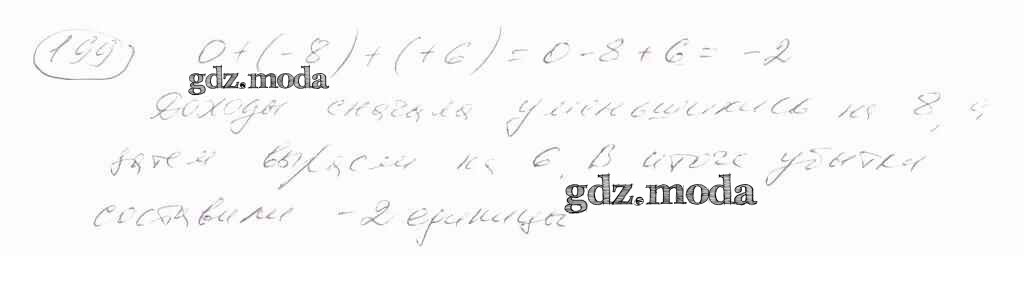 199 0 + (-8) + (+6) = 0 - 8 + 6 = -2
gdz.moda
Доходы сначала уменьшились на 8, а
затем выросли на 6. В итоге убытки
gdz.moda
составили -2 единицы